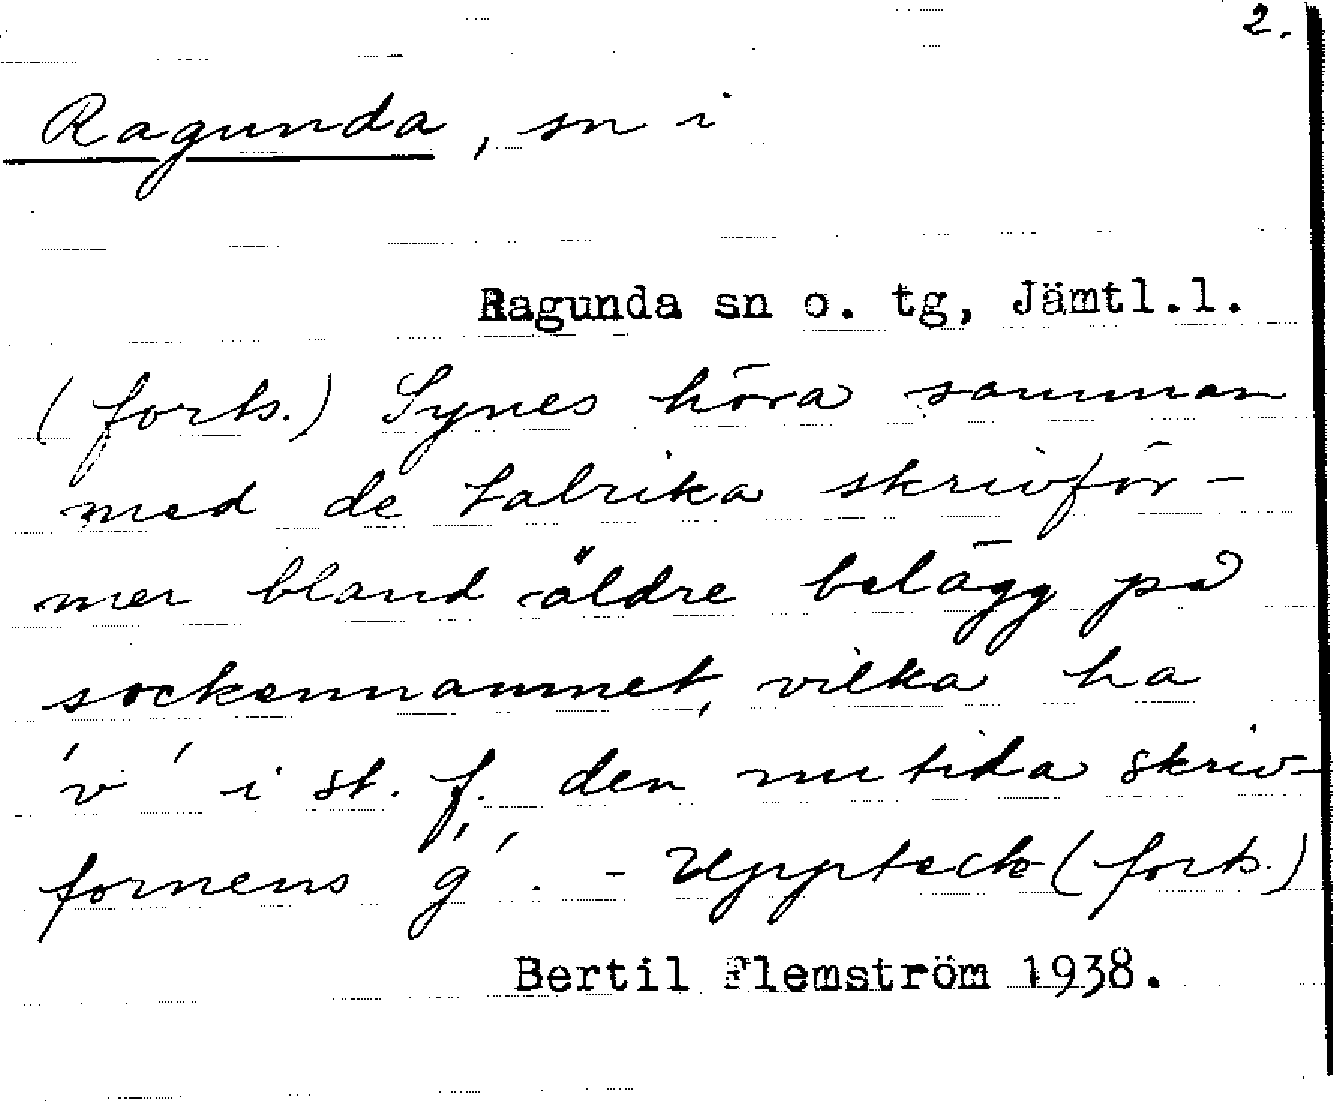 2.
Ragunda, sn i
Ragunda sn o. tg, Jämtl.l.
(forts.) Synes höra samman
med de talrika skrivfor-
mer bland äldre belägg på
sockennamnet, vilka ha
'v' i st. f. den nutida skriv-
formens 'g'. - Uppteck (forts.)
Bertil Flemström 1938.